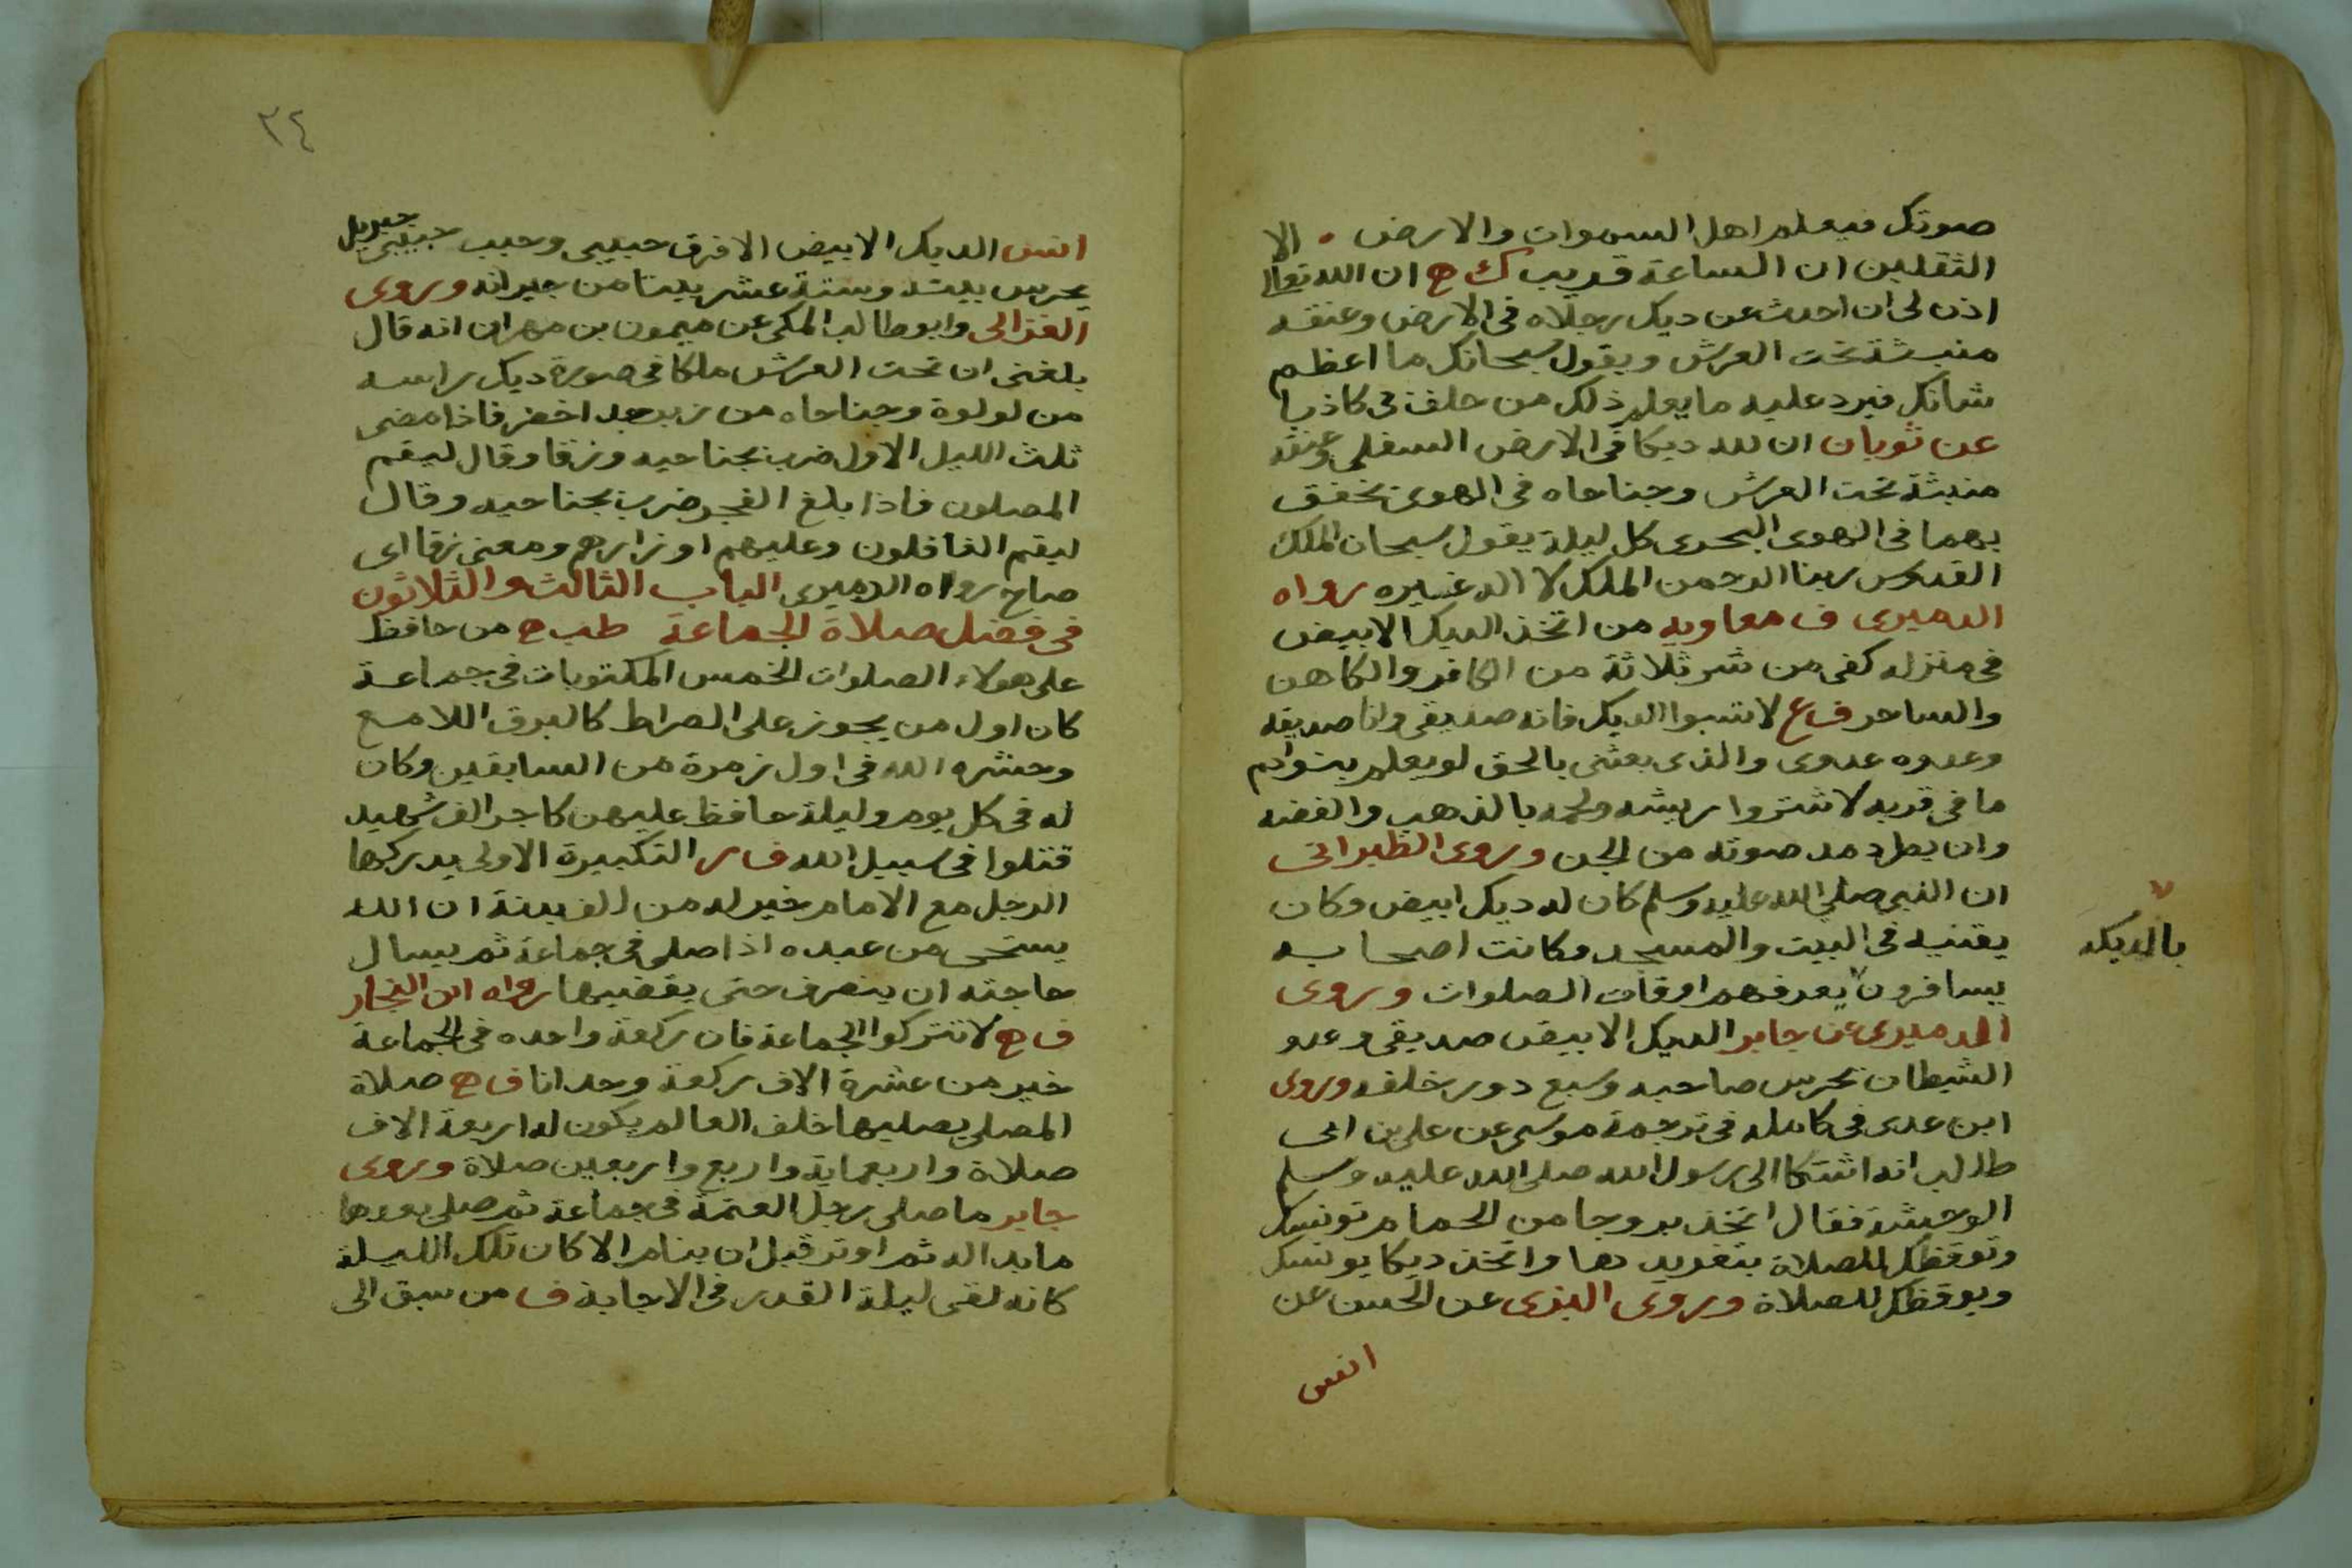 صوتك فيعلم اهل السموات والارض . الا
الثقلين ان الساعة قريب ك ح ان الله تعالى
اذن لى ان احدث عن ديك رجلاه فى الارض وعنقه
منبثة تحت العرش ويقول سبحانك ما اعظم
شانك فيرد عليه ما يعلم ذلك من حلف بى كاذبا
عن ثوبان ان لله ديكا فى الارض السفلى وعنقه
منبثة تحت العرش وجناحاه فى الهوى تخفق
بهما فى الهوى البحرى كل ليلة يقول سبحان الملك
القدوس ربنا الرحمن الملك لا اله غيره رواه
الدميرى ف معاويه من اتخذ الديك الابيض
فى منزله كفى من شر ثلاثة من الكافر والكاهن
والساحر ف ع لا تسبوا الديك فانه صديقى وانا صديقه
وعدوه عدوى والذى بعثنى بالحق لو يعلم بنو ادم
ما فى قربه لاشتروا ريشه ولحمه بالذهب والفضه
وان يطرد مد صوته من الجن وروى الطبرانى
ان النبى صلى الله عليه وسلم كان له ديك ابيض وكان
يقتنيه فى البيت والمسجد وكانت اصحابه
يسافرون يعرفهم اوقات الصلوات وروى
بالديكه
الدميرى عن جابر الديك الابيض صديقى وعدو
الشيطان يحرس صاحبه وسبع دور خلفه وروى
ابن عدى فى كامله فى ترجمة موسى عن على بن ابى
طالب انه اشتكا الى رسول الله صلى الله عليه وسلم
الوحيشة فقال اتخذ بروجا من الحمام تونسك
وتوقظك للصلاة بتغريدها واتخذ ديكا يونسك
ويوقظك للصلاة وروى البزى عن الحسن عن
انس
٣٤
انس الديك الابيض الافرق حبيبى وحبيب حبيبى جبريل
يحرس بيته وستة عشر بيتا من جيرانه وروى
الغزالى وابو طالب المكى عن ميمون بن مهران انه قال
بلغنى ان تحت العرش ملكا فى صورة ديك راسه
من لولوة وجناحاه من زبرجد اخضر فاذا مضى
ثلث الليل الاول ضرب بجناحيه وزقا وقال ليقم
المصلون فاذا بلغ الفجر ضرب بجناحيه وقال
ليقم الغافلون وعليهم اوزارهم ومعنى زقا اى
صاح رواه الدميرى الباب الثالث والثلاثون
فى فضل صلاة الجماعة طب ح من حافظ
على هولاء الصلوات الخمس المكتوبات فى جماعة
كان اول من يجوز على الصراط كالبرق اللامع
وحشره الله فى اول زمرة من السابقين وكان
له فى كل يوم وليلة حافظ عليهن كاجر الف شهيد
قتلوا فى سبيل الله ف ر التكبيرة الاولى يدركها
الرجل مع الامام خير له من الف بدنة ان الله
يستحى من عبده اذا صلى فى جماعة ثم يسال
حاجته ان ينصرف حتى يقضيها رواه ابن النجار
ف ح لا تتركوا الجماعة فان ركعة واحده فى الجماعة
خير من عشرة الاف ركعة وحدانا ف ح صلاة
المصلى يصليها خلف العالم يكون له اربعة الاف
صلاة واربعماية واربع واربعين صلاة وروى
جابر ما صلى رجل العتمة فى جماعة ثم صلى بعدها
ما بدا له ثم اوتر قبل ان ينام الا كان تلك الليلة
كانه لقى ليلة القدر فى الاجابة ف من سبق الى